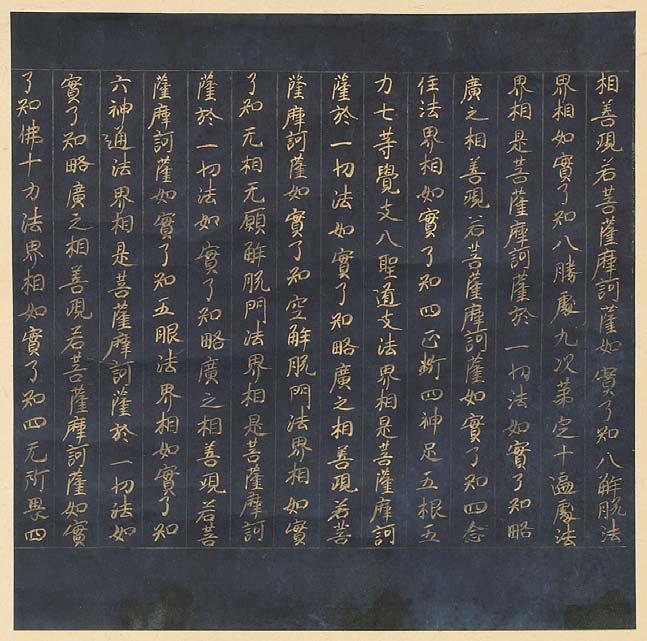 相善現若菩薩摩訶薩如實了知八解脫法
界相如實了知八勝處九次第定十遍處法
界相是菩薩摩訶薩於一切法如實了知略
廣之相善現若菩薩摩訶薩如實了知四念
住法界相如實了知四正斷四神足五根五
力七等覺支八聖道支法界相是菩薩摩訶
薩於一切法如實了知略廣之相善現若菩
薩摩訶薩如實了知空解脫門法界相如實
了知无相无願解脫門法界相是菩薩摩訶
薩於一切法如實了知略廣之相善現若菩
薩摩訶薩如實了知五眼法界相如實了知
六神通法界相是菩薩摩訶薩於一切法如
實了知略廣之相善現若菩薩摩訶薩如實
了知佛十力法界相如實了知四无所畏四